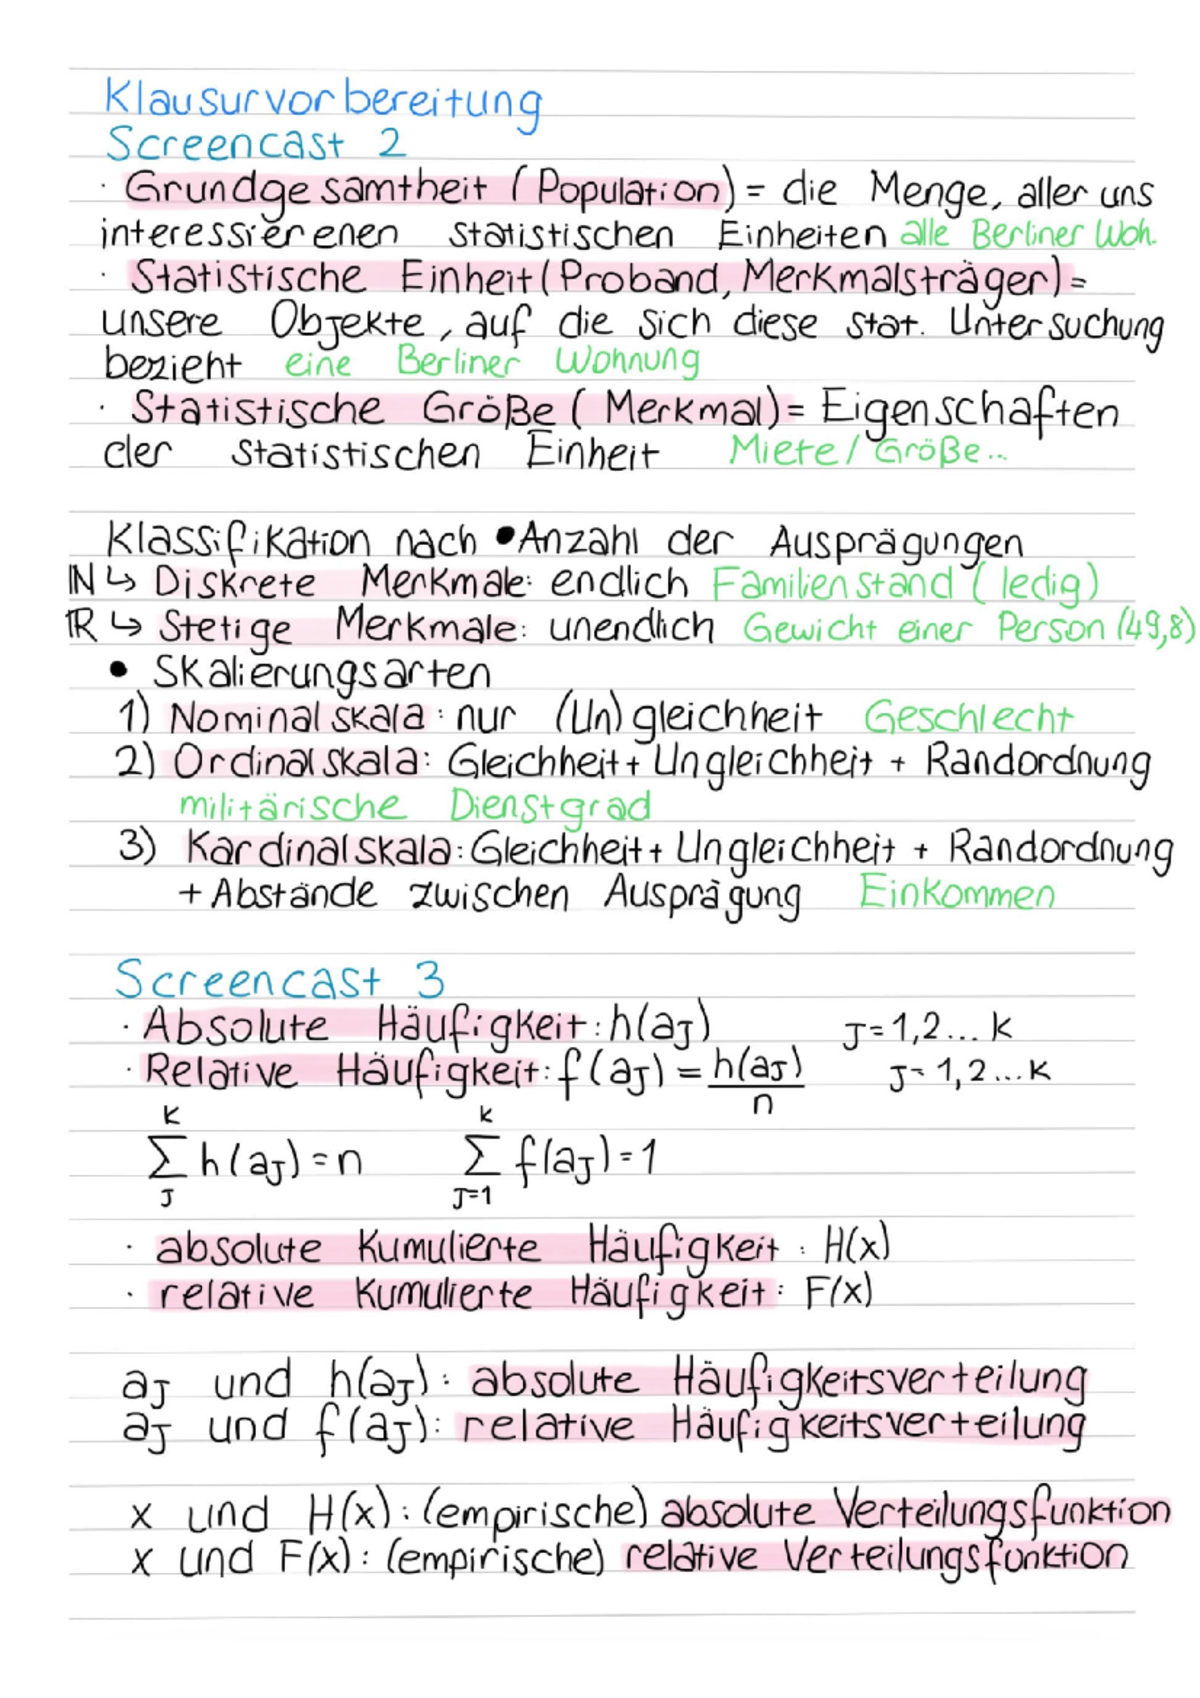 Klausurvorbereitung
Screencast 2
· Grundgesamtheit (Population) = die Menge, aller uns
interessierenen statistischen Einheiten alle Berliner Woh.
· Statistische Einheit (Proband, Merkmalsträger) =
unsere Objekte, auf die sich diese stat. Untersuchung
bezieht eine Berliner Wohnung
· Statistische Größe (Merkmal) = Eigenschaften
der statistischen Einheit Miete/Größe...
Klassifikation nach • Anzahl der Ausprägungen
ℕ ↳ Diskrete Merkmale: endlich Familienstand (ledig)
ℝ ↳ Stetige Merkmale: unendlich Gewicht einer Person (49,8)
• Skalierungsarten
1) Nominalskala: nur (Un)gleichheit Geschlecht
2) Ordinalskala: Gleichheit + Ungleichheit + Randordnung
militärische Dienstgrad
3) Kardinalskala: Gleichheit + Ungleichheit + Randordnung
+ Abstände zwischen Ausprägung Einkommen
Screencast 3
· Absolute Häufigkeit: h(aJ) J=1,2... K
· Relative Häufigkeit: f(aJ) = h(aJ)/n J=1,2...K
K K
∑ h(aJ) = n ∑ f(aJ) = 1
J J=1
· absolute Kumulierte Häufigkeit: H(x)
· relative Kumulierte Häufigkeit: F(x)
aJ und h(aJ): absolute Häufigkeitsverteilung
aJ und f(aJ): relative Häufigkeitsverteilung
x und H(x): (empirische) absolute Verteilungsfunktion
x und F(x): (empirische) relative Verteilungsfunktion